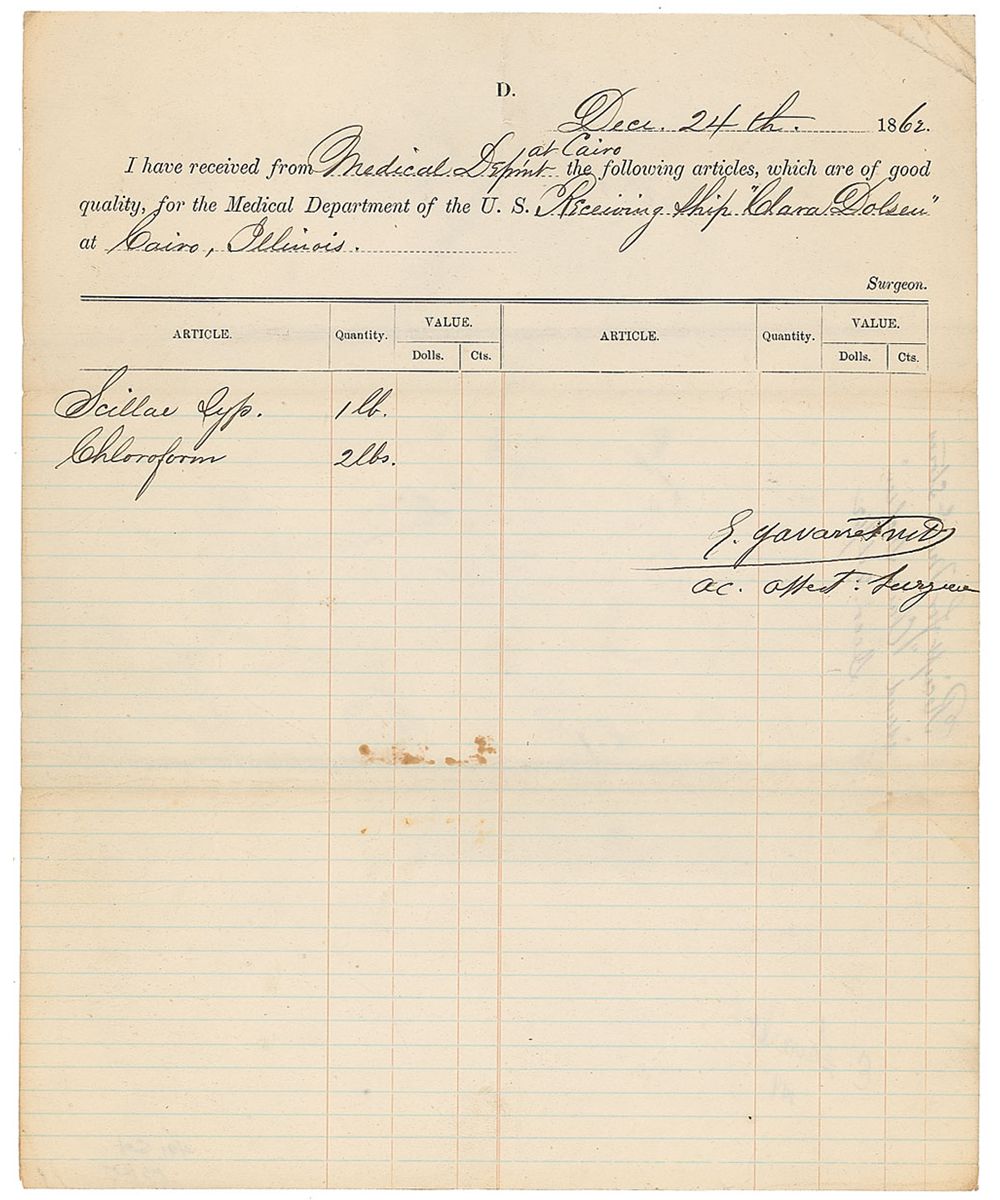 D.
Dec. 24th. 1862.
at Cairo
I have received from Medical Depmt the following articles, which are of good
quality, for the Medical Department of the U. S. Receiving Ship "Clara Dolsen"
at Cairo, Illinois.
Surgeon.
ARTICLE. Quantity. VALUE. Dolls. Cts. ARTICLE. Quantity. VALUE. Dolls. Cts.
Scillae Syp. 1 lb.
Chloroform 2 lbs.
E. MD
Ac. Assist: Surgeon